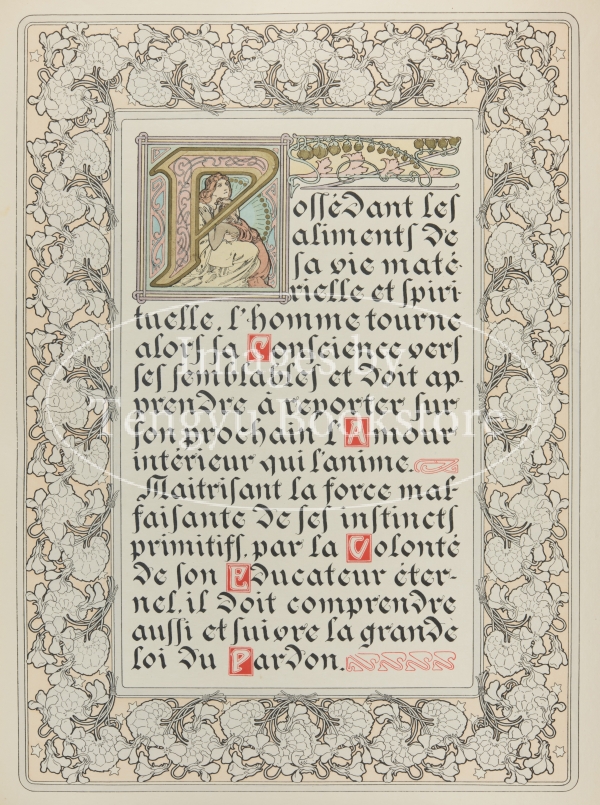 Possédant les
aliments de
sa vie maté-
rielle et spiri-
tuelle, l'homme tourne
alors sa Conscience vers
ses semblables et doit ap-
prendre à reporter sur
son prochain l'Amour
intérieur qui l'anime.
Maitrisant la force mal-
faisante de ses instincts
primitifs, par la Volonté
de son Educateur éter-
nel, il doit comprendre
aussi et suivre la grande
loi du Pardon.
Images by
Tengyu Bookstore